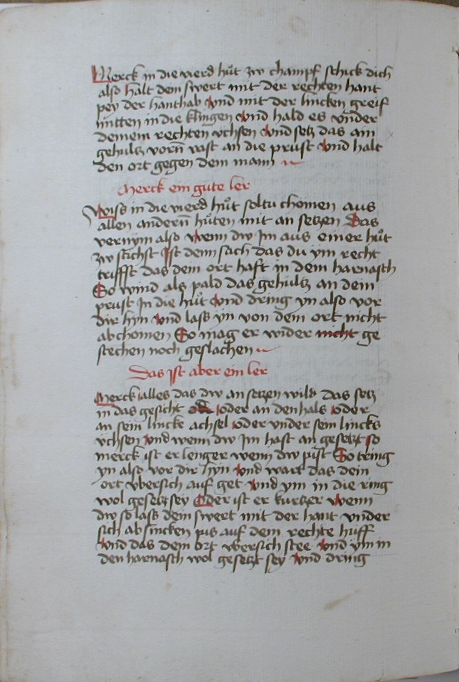 Merck in die vierd hůt zw champf schick dich
also halt dein swert mit der rechten hant
pey der hanthab vnd mit der lincken greif
mitten in die klingen vnd hald es vnder
deinem rechten vchsen vnd setz das am
gehulcz vorn vast an die prust vnd halt
den ort gegen dem mann
Merck ein gute ler
Wiss in die vierd hůt soltu chomen aus
allen anderen hůten mit an seczen Das
vernym also Wenn dw im aus einer hůt
zw stichst Ist dem sach das du ym recht
triffst das dem ort haft in dem harnasch
So wind als pald das gehulcz an dein
prust In die hůt vnd dring yn also vor
dir hyn vnd lass yn von dem ort nicht
abchomen So mag er wider nicht ge
stechen noch geslachen
Das Ist aber ein ler
Merck alles das dw an seczen wild das secz
in das gesicht oder an den hals oder
an sein lincke achsel oder vnder sein lincks
vchsen vnd wenn dw im hast an gesetzt so
merck ist er lenger wenn dw pist So dring
yn also vor dir hyn vnd wart das dein
ort vbersich auf get vnd ym in die ring
wol gesetzt sey Oder ist er kurczer wenn
dw so lass dein swert mit der hant vnder
sich ab sincken pis auf dein rechte huff
vnd das dein ort vbersich stee vnd ym in
den harnasch wol gesetzt sey vnd dring